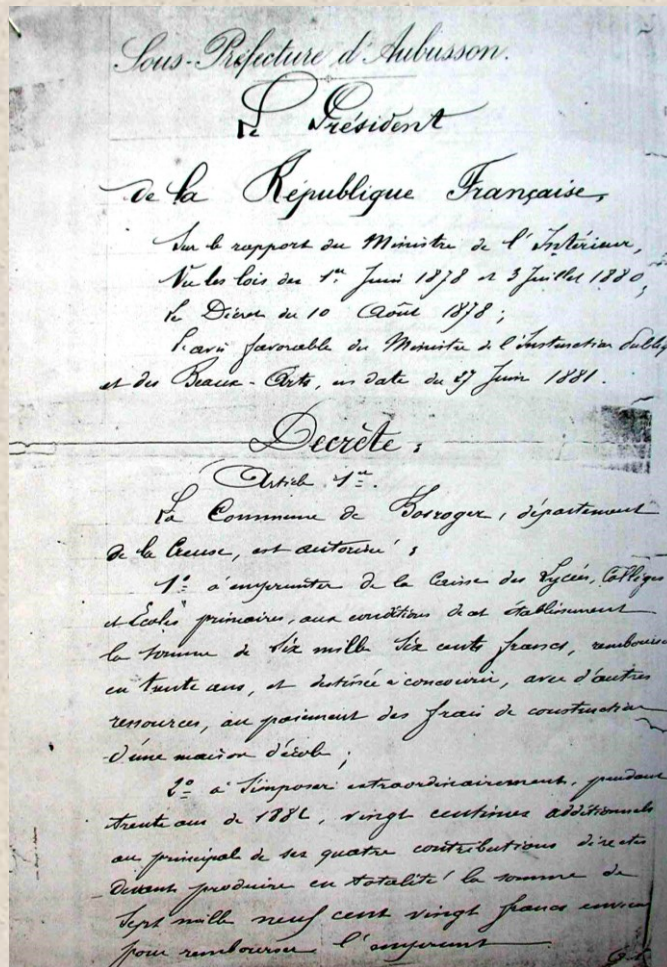 Sous-Préfecture d'Aubusson.
Le Président
de la République Française,
Sur le rapport du Ministre de l'Intérieur,
Vu les lois des 1er Juin 1878 et 3 Juillet 1880,
le Décret du 10 Août 1878 ;
L'avis favorable du Ministre de l'Instruction Publiq
et des Beaux-Arts, en date du 27 Juin 1881.
Decrète :
Article 1er.
La Commune de Bosroger, département
de la Creuse, est autorisée :
1º à emprunter de la Caisse des Lycées, Collèges
et Écoles primaires, aux conditions de cet établissement
la somme de Six mille Six cents francs, rembours
en trente ans, et destinée à concourir, avec d'autres
ressources, au paiement des frais de construction
d'une maison d'école ;
2º à S'imposer extraordinairement, pendant
trente ans de 1882, vingt centimes additionnels
au principal de ses quatre contributions directes
devant produire en totalité la somme de
Sept mille neuf cent vingt francs environ
pour rembourser l'emprunt.